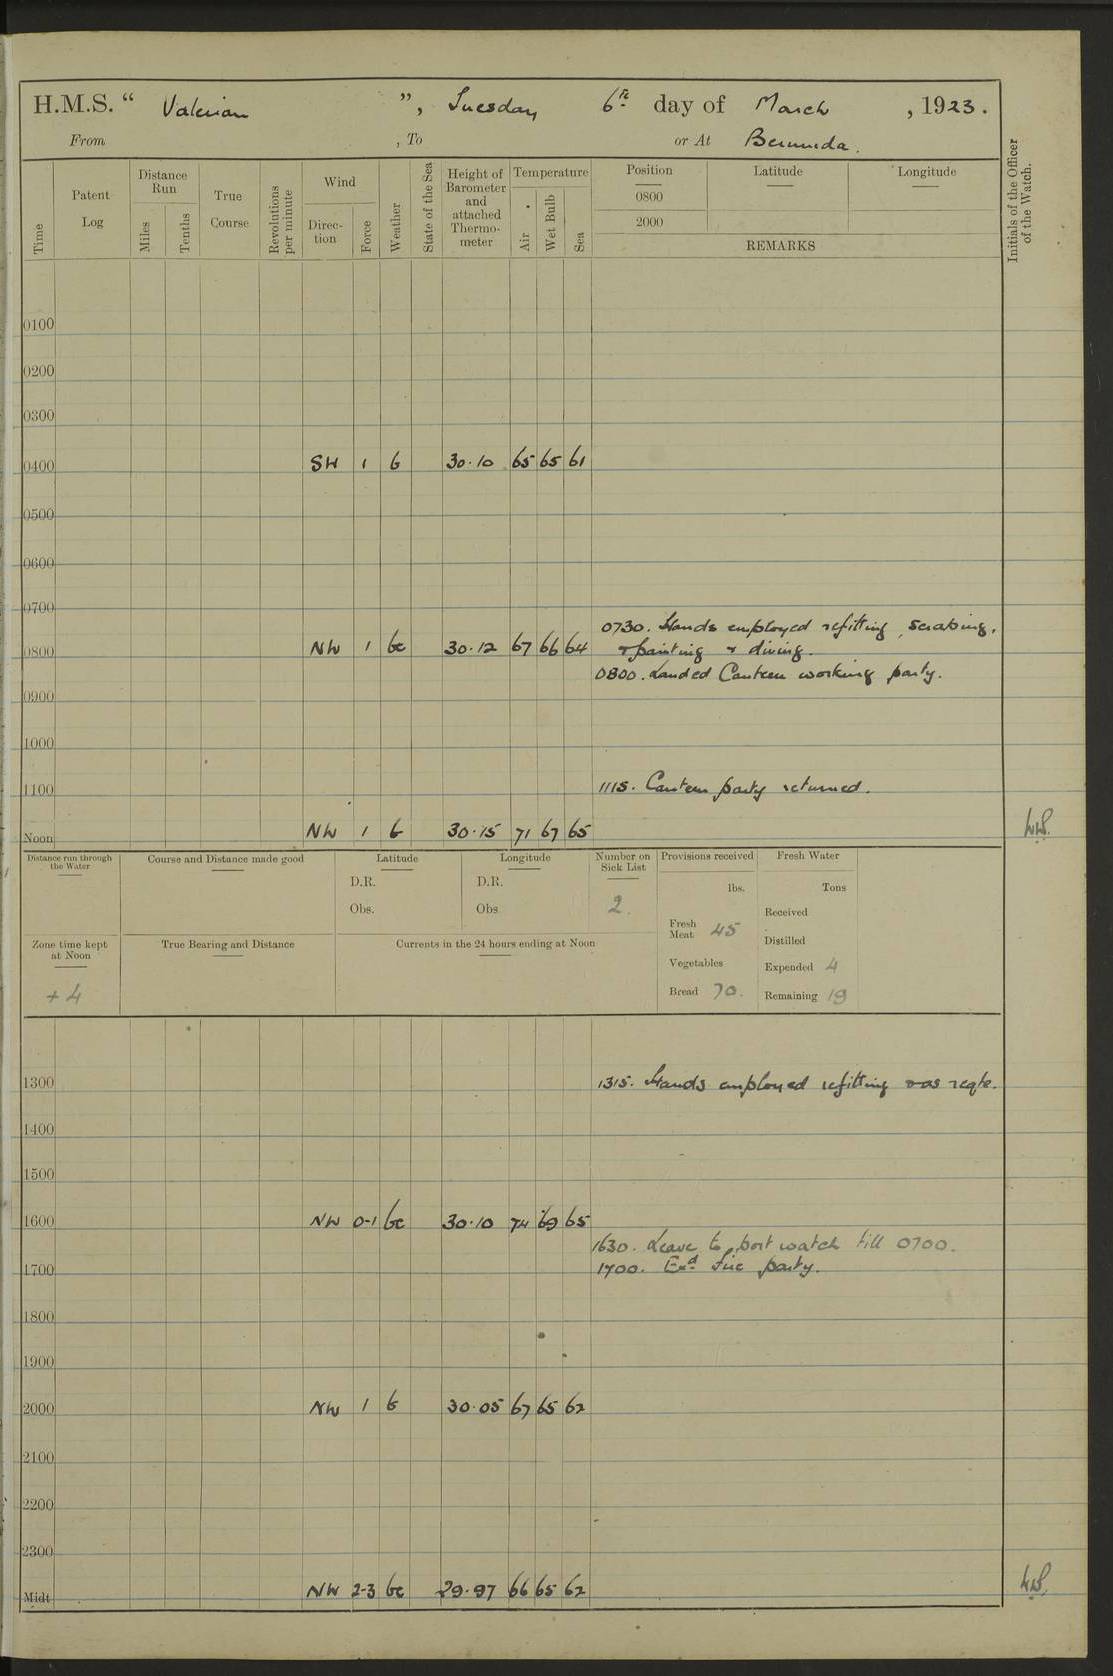 H.M.S. “ Valerian ”, Tuesday 6th day of March , 1923.
From , To or At Bermuda.
Time
Patent Log
Distance Run
Miles
Tenths
True Course
Revolutions per minute
Wind
Direc-tion
Force
Weather
State of the Sea
Height of Barometer and attached Thermo-meter
Temperature
Air
Wet Bulb
Sea
Position
0800
2000
Latitude
Longitude
REMARKS
Initials of the Officer of the Watch.
0100
0200
0300
0400 SW 1 b 30.10 65 65 61
0500
0600
0700
0730. Hands employed refitting, scraping,
0800 NW 1 bc 30.12 67 66 64 + painting + diving.
0800. Landed Canteen working party.
0900
1000
1100 1115. Canteen party returned.
Noon NW 1 b 30.15 71 67 65
Distance run through the Water
Course and Distance made good
Latitude
D.R.
Obs.
Longitude
D.R.
Obs
Number on Sick List
2.
Provisions received
lbs.
Fresh Meat 45
Vegetables
Bread 70.
Fresh Water
Tons
Received
Distilled
Expended 4
Remaining 19
Zone time kept at Noon
+ 4
True Bearing and Distance
Currents in the 24 hours ending at Noon
1300 1315. Hands employed refitting + as reqte.
1400
1500
1600 NW 0-1 bc 30.10 74 69 65
1630. Leave to port watch till 0700.
1700 1700. Exd fire party.
1800
1900
2000 NW 1 b 30.05 67 65 62
2100
2200
2300
Midt NW 2-3 bc 29.97 66 65 62